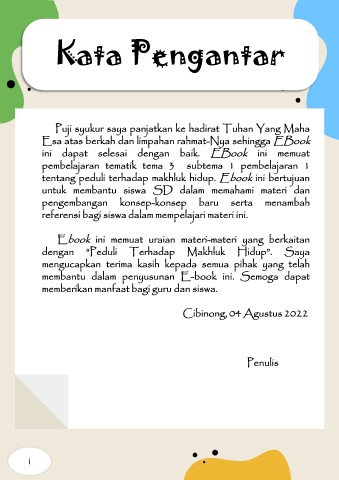 Kata Pengantar
Puji syukur saya panjatkan ke hadirat Tuhan Yang Maha
Esa atas berkah dan limpahan rahmat-Nya sehingga EBook
ini dapat selesai dengan baik. EBook ini memuat
pembelajaran tematik tema 3 subtema 1 pembelajaran 1
tentang peduli terhadap makhluk hidup. Ebook ini bertujuan
untuk membantu siswa SD dalam memahami materi dan
pengembangan konsep-konsep baru serta menambah
referensi bagi siswa dalam mempelajari materi ini.
Ebook ini memuat uraian materi-materi yang berkaitan
dengan "Peduli Terhadap Makhluk Hidup". Saya
mengucapkan terima kasih kepada semua pihak yang telah
membantu dalam penyusunan E-book ini. Semoga dapat
memberikan manfaat bagi guru dan siswa.
Cibinong, 04 Agustus 2022
Penulis
i